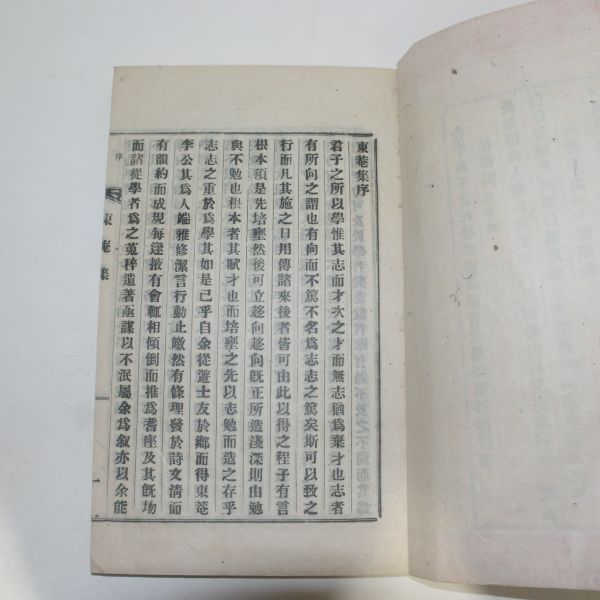 東菴集序
君子之所以學惟其志而才次之才而無志猶爲棄才也志者
有所向之謂也有向而不篤不名爲志志之篤矣斯可以致之
行而凡其施之日用傳諸來後者皆可由此以得之程子有言
根本須是先培壅然後可立趍向趍向旣正所造淺深則由勉
與不勉也根本者其賦才也而培壅之先以志勉而造之存乎
志志之重於爲學其如是已乎自余從遊士友於鄕而得東菴
李公其爲人端雅修潔言行動止皦然有條理發於詩文淸而
有韻約而成規每逢掖有會輒相傾倒而推爲耆座及其旣圽
而諸從學者爲之蒐稡遺著亟謀以不泯屬余爲叙亦以余能
東菴集
序
一